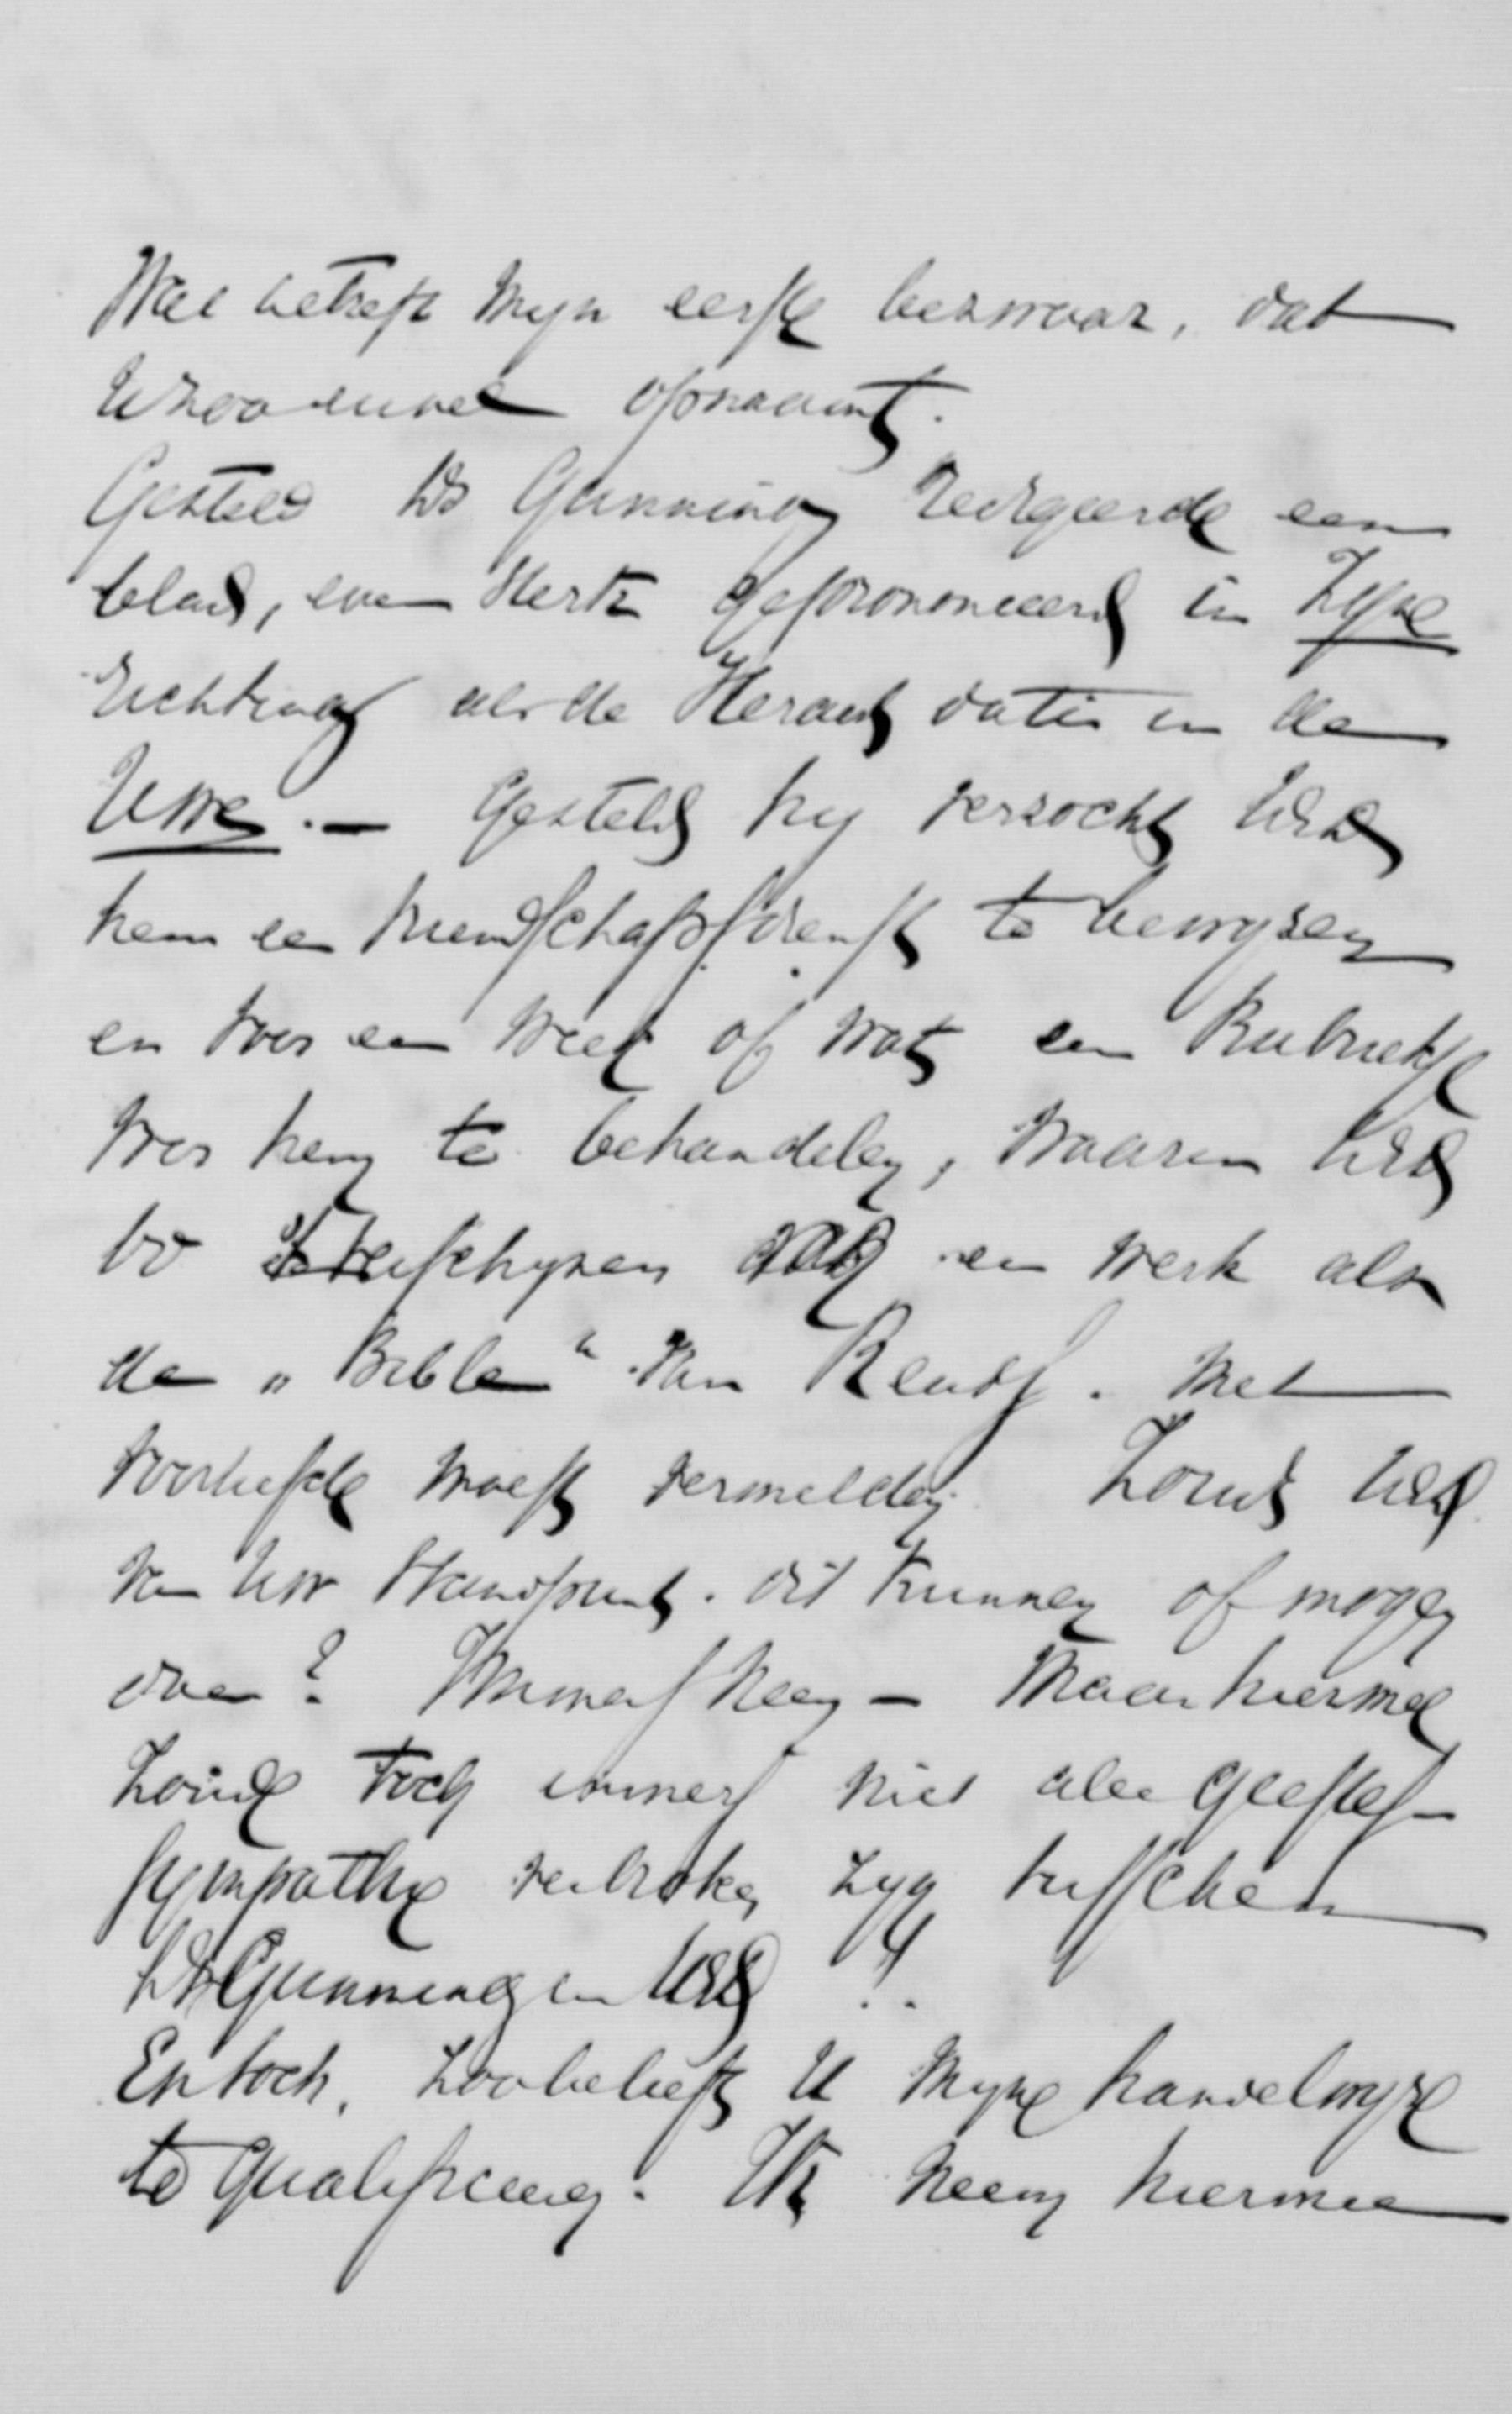 Wat betreft mijn eerste bezwaar, dat
U zoo euvel opnaamt.
Gesteld Ds Gunning redigeerde een
blad, even sterk geprononceerd in Zijne
richting als de Heraut dat is in de
Uwe. — Gesteld hij verzocht UEd
hem een vriendschapsdienst te bewijzen
en voor een week of wat een Rubriekje
voor hem te behandelen, waarin UEd
bv een werk als
den „Bibble" van Reuss. met
voorliefde moest vermelden. Zoudt UEd
van Uw standpunt dit kunnen of mogen
doen? Immers Neen — Maar hiermee
zoude toch immers niet alle geestes-
sympathie verbroken zijn tusschen
Ds Gunning en UEd !!
En toch, zoo belieft U mijne handelwijze
te qualificeeren. Ik neem hiermee